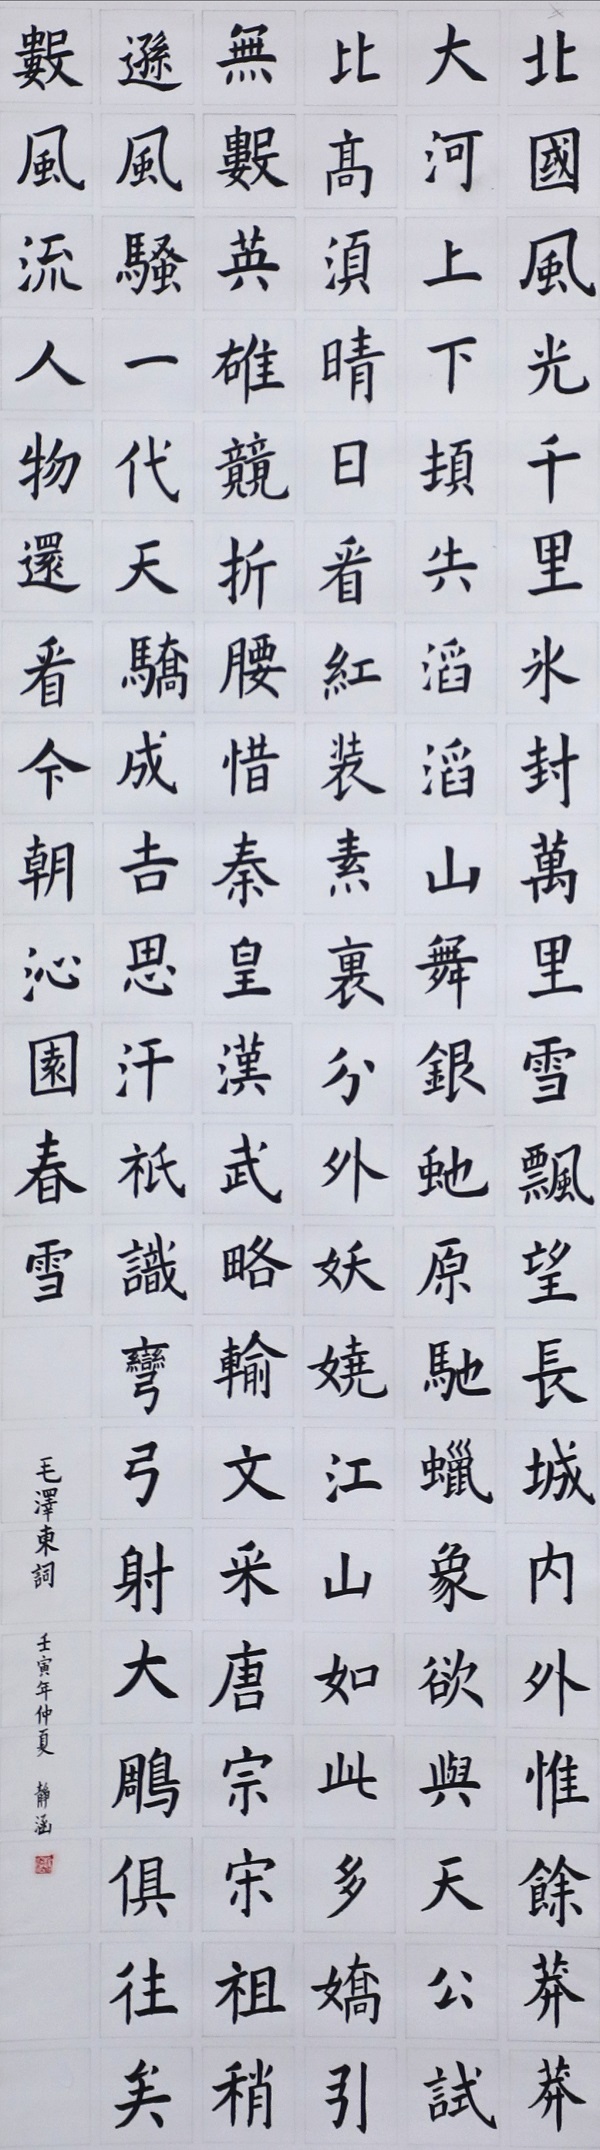 北國風光千里氷封萬里雪飄望長城内外惟餘莽莽
大河上下頓失滔滔山舞銀虵原馳蠟象欲與天公試
比高須晴日看紅装素裹分外妖嬈江山如此多嬌引
無數英雄競折腰惜秦皇漢武略輸文采唐宗宋祖稍
遜風騷一代天驕成吉思汗祇識彎弓射大鵰俱往矣
數風流人物還看今朝沁園春雪
毛澤東詞
壬寅年仲夏 靜涵